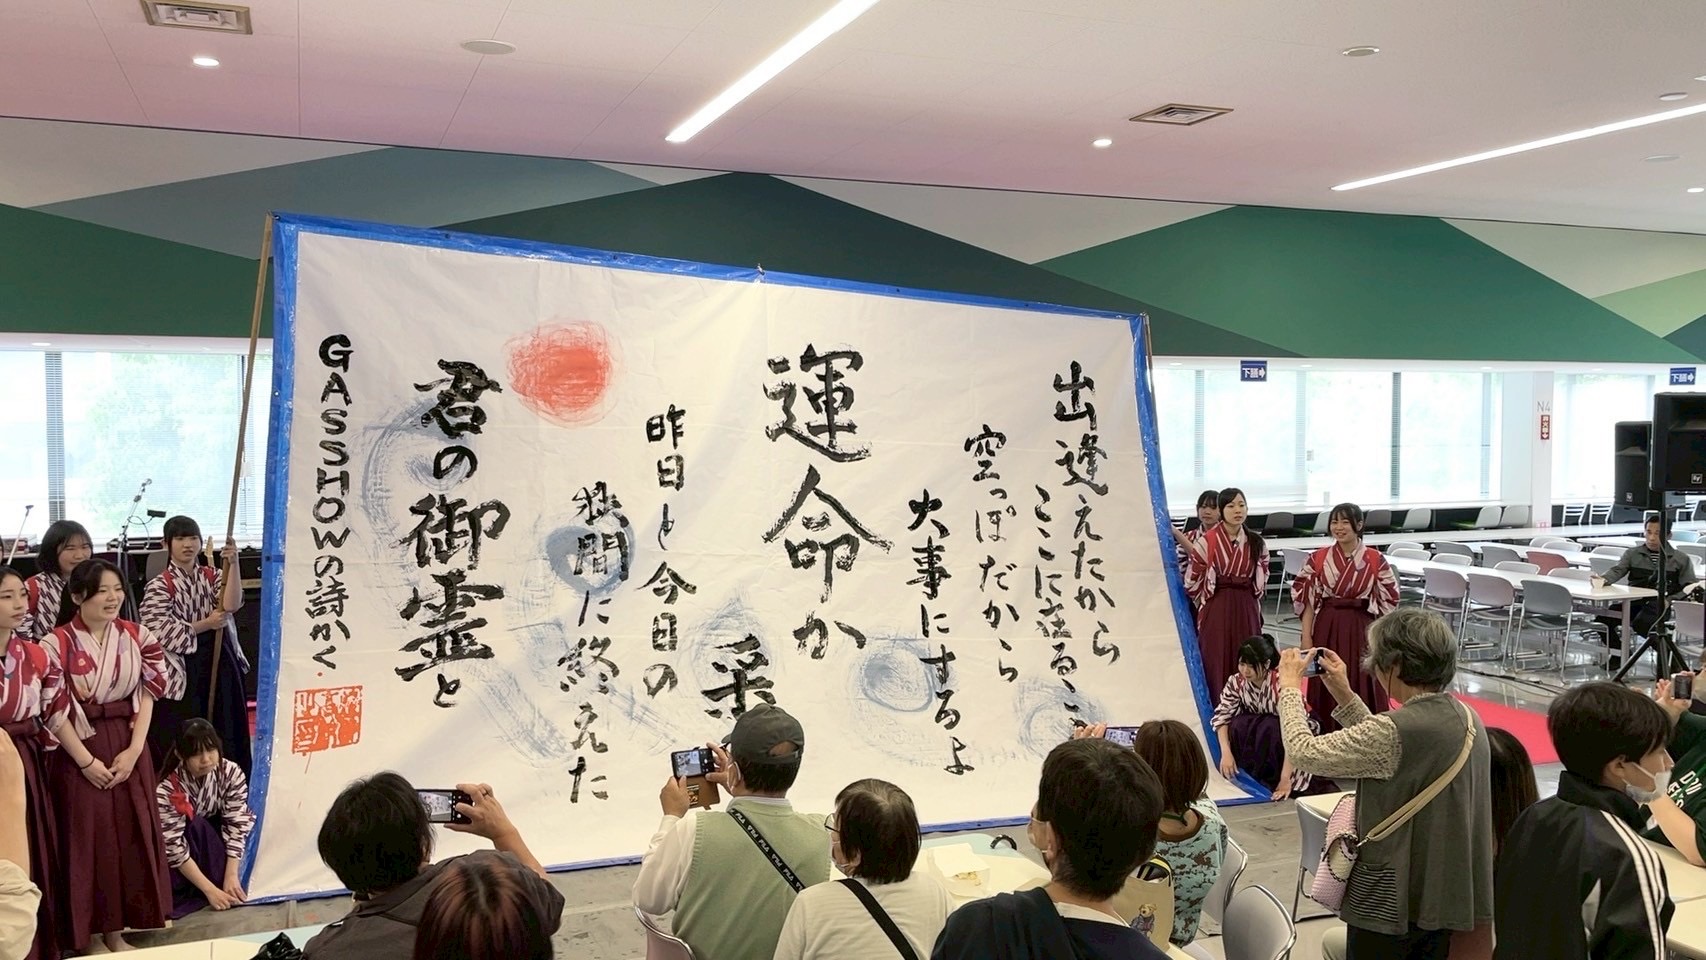 出逢えたから
ここに在るこ
空っぽだから
大事にするよ
運命か
采
昨日と今日の
狭間に終えた
君の御霊と
GASSHOWの詩かく
下膳
下膳
N4